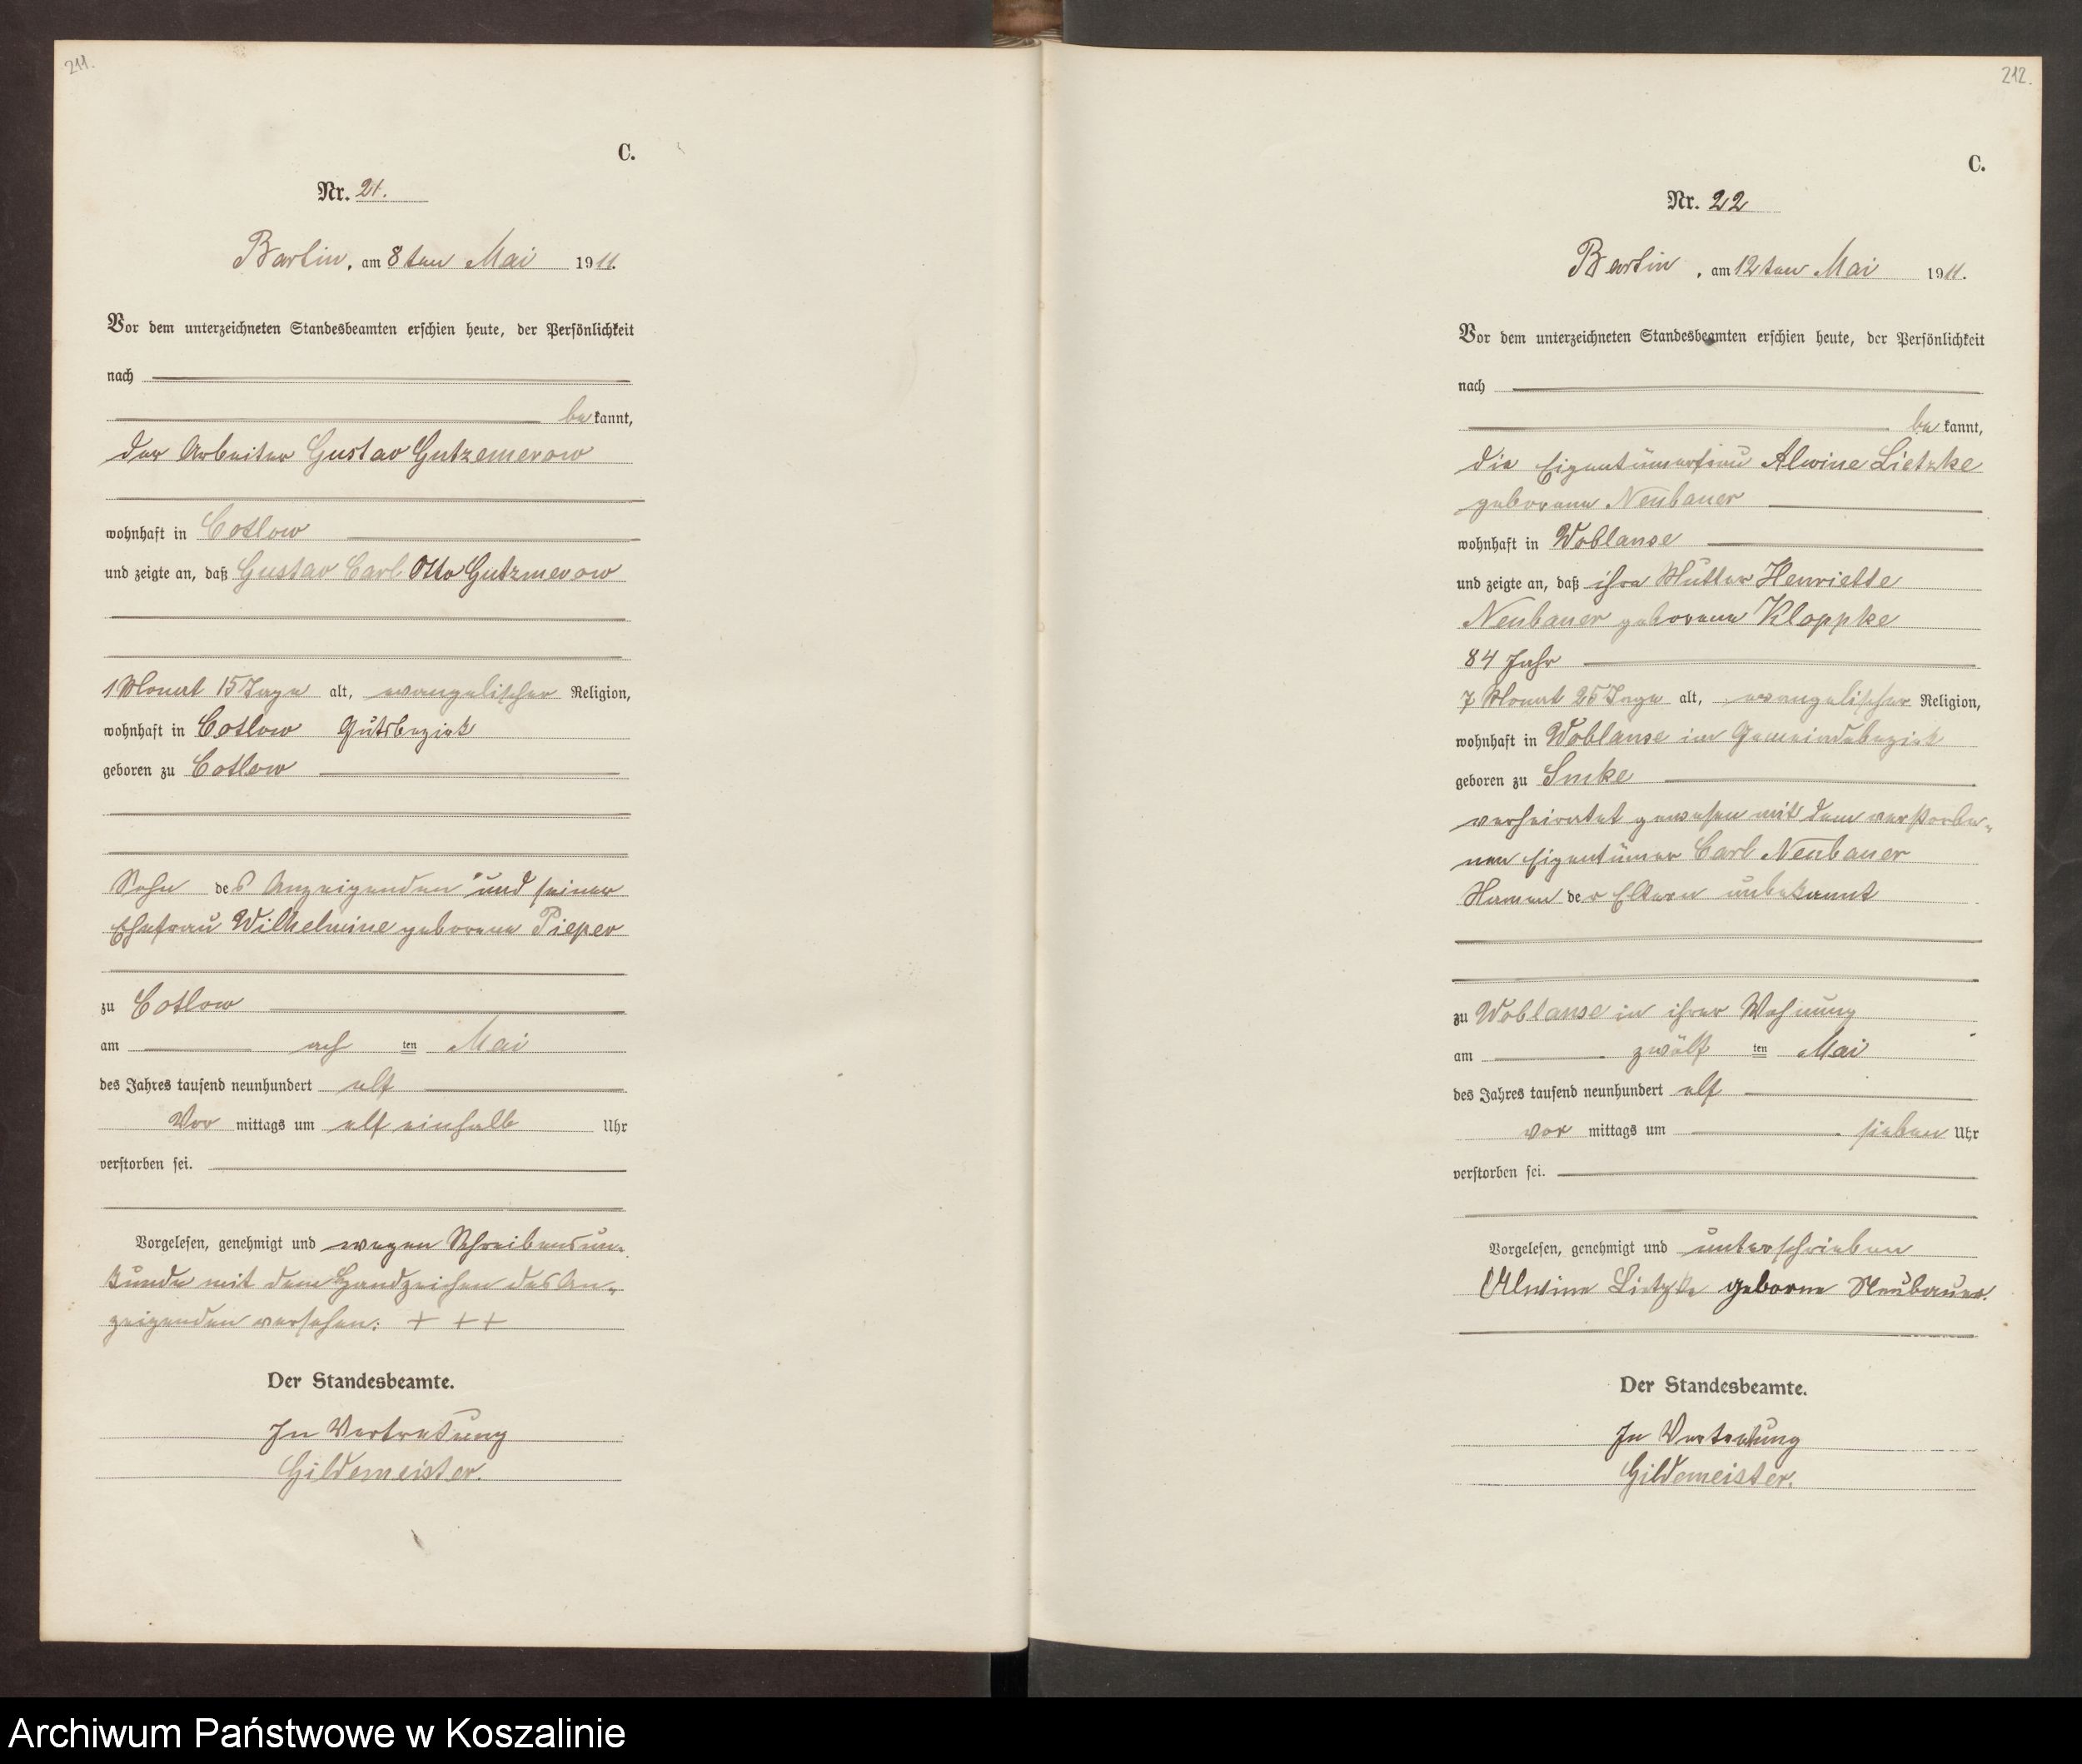 211.
C.
Nr. 21.
Bartin, am 8ten Mai 1911.
Vor dem unterzeichneten Standesbeamten erschien heute, der Persönlichkeit
nach
bekannt,
der Arbeiter Gustav Gutzemerow
wohnhaft in Cotlow
und zeigte an, daß Gustav Carl Otto Gutzmerow
1 Monat 15 Tage alt, evangelischer Religion,
wohnhaft in Cotlow Gutsbezirk
geboren zu Cotlow
Sohn des Anzeigenden und seiner
Ehefrau Wilhelmine geborene Pieper
zu Cotlow
am ach ten Mai
des Jahres tausend neunhundert elf
Vor mittags um elf einhalb Uhr
verstorben sei.
Vorgelesen, genehmigt und wegen Schreibensun-
kunde mit dem Handzeichen des An-
zeigenden versehen: + + +
Der Standesbeamte.
In Vertretung
Gildemeister.
212.
C.
Nr. 22
Bartin, am 12ten Mai 1911.
Vor dem unterzeichneten Standesbeamten erschien heute, der Persönlichkeit
nach
bekannt,
die Eigentümerfrau Alwine Lietzke
geborene Neubauer
wohnhaft in Woblanse
und zeigte an, daß ihre Mutter Henriette
Neubauer geborene Kloppke
84 Jahr
7 Monat 25 Tage alt, evangelischer Religion,
wohnhaft in Woblanse im Gemeindebezirk
geboren zu
verheiratet gewesen mit dem verstorbe-
nen Eigentümer Carl Neubauer
Namen der Eltern unbekannt
zu Woblanse in ihrer Wohnung
am zwölf ten Mai
des Jahres tausend neunhundert elf
vor mittags um sieben Uhr
verstorben sei.
Vorgelesen, genehmigt und unterschrieben
Alwine Lietzke geborne Neubauer.
Der Standesbeamte.
In Vertretung
Gildemeister.
Archiwum Państwowe w Koszalinie